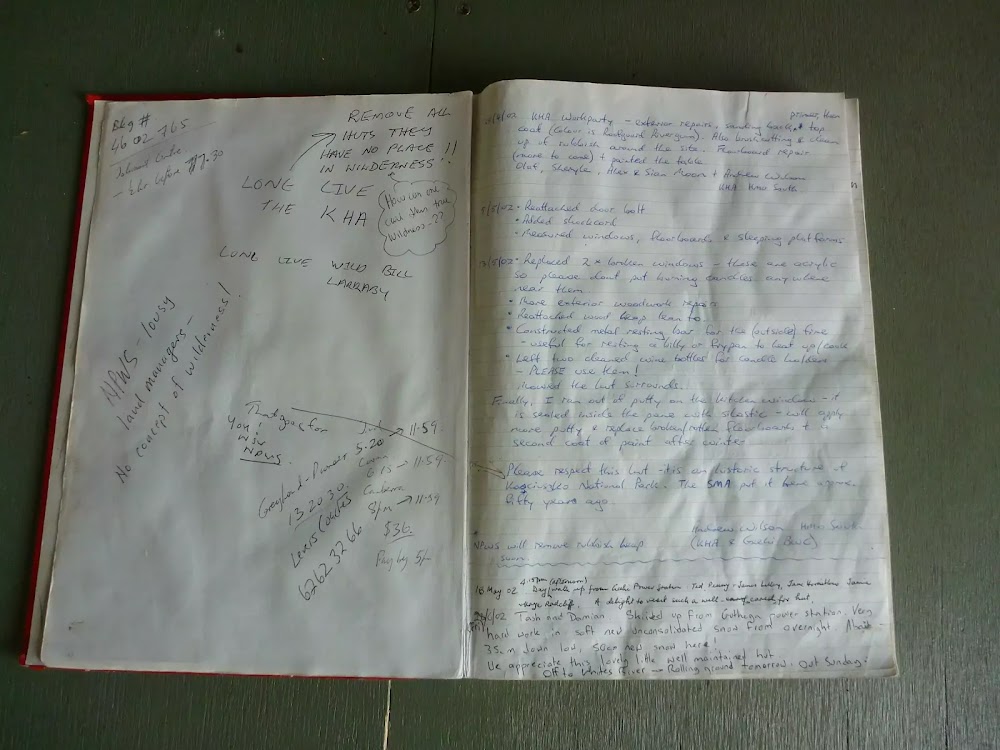 Bkg #
4602 765
REMOVE ALL
HUTS THEY
HAVE NO PLACE
IN WILDERNESS!!
LONG LIVE
THE KHA
How can one
call this true
wildness -??
LONG LIVE WILD BILL
LARRABY
NPWS - lousy
land managers -
No concept of wilderness!
That goes for
you!
NPWS
5.20 → 11:59
→ 11:59
Canberra
→ 11:59
$36
Greyhound - Pioneer
13 20 30
6262 3266
primer, then
KHA Workparty - exterior repairs, sanding back, top
coat (Colour is Rivergum). Also brushcutting & clean
up of rubbish around the site. Floorboard repair
(more to come) & painted the table.
Olaf, Alex & Sian Moon + Andrew Wilson
KHA Hmo South
5/02 • Reattached door bolt
• Added
• Measured windows, floorboards & sleeping platforms
5/02 • Replaced 2 x broken windows - these are acrylic
so please dont put burning candles anywhere
near them
• More exterior woodwork repairs
• Reattached wood heap lean to
• Constructed metal resting bar for the (outside) fire
- useful for resting a billy or frypan to heat up/cook
• Left two cleaned wine bottles for candle holders
- PLEASE use them!
the hut surrounds.
Finally, I ran out of putty on the kitchen windows - it
is sealed inside the pane with silastic - will apply
more putty & replace broken/rotten floorboards +
second coat of paint after winter
Please respect this hut - it is an historic structure of
Kosciuszko National Park. The SMA put it here approx.
fifty years ago.
Andrew Wilson Hmo South
(KHA &
NPWS will remove rubbish heap
soon.
4.15pm (afternoon)
18 May 02 Day walk up from Power Station. Ted
A delight to visit such a well cared for hut.
/02 Tash and Damian Skied up from Guthega power station. Very
hard work in soft new unconsolidated snow from overnight. About
35cm down low, 50cm new snow here.
We appreciate this lovely little well maintained hut.
Off to Whites River - Rolling Ground tomorrow. Out Sunday.